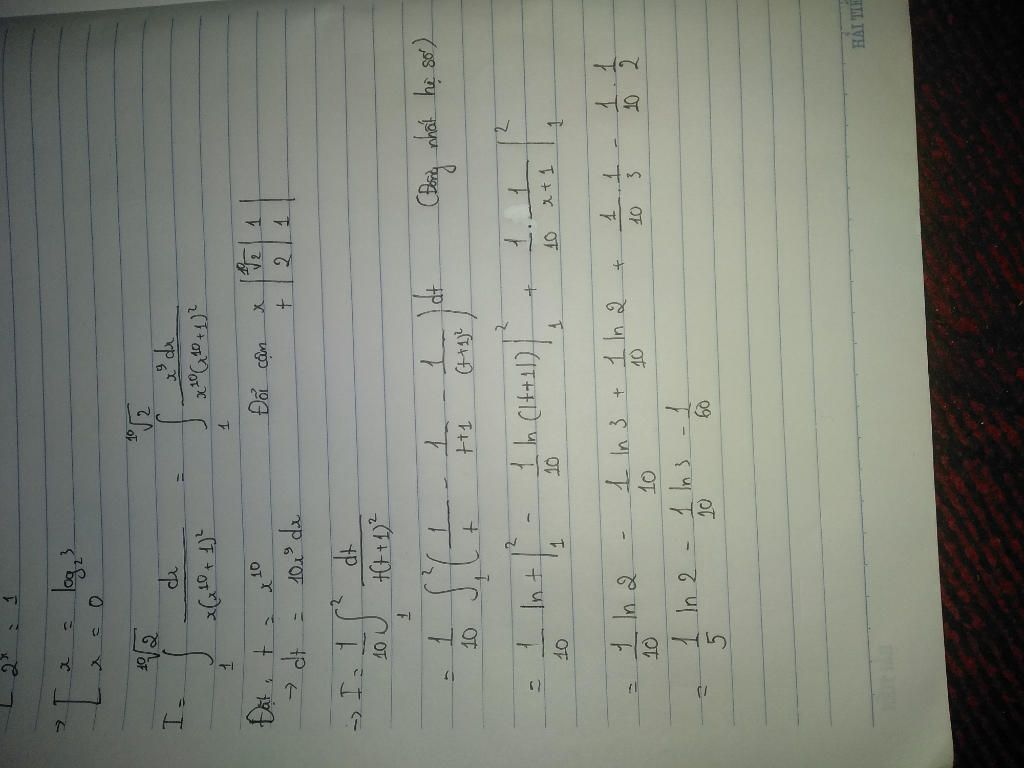 [ 2ˣ = 1
→ [ x = log₂3
x = 0
I = ∫₁^(¹⁰√2) dx / x(x¹⁰+1)² = ∫₁^(¹⁰√2) x⁹ dx / x¹⁰(x¹⁰+1)²
Đặt: t = x¹⁰ Đổi cận x | ¹⁰√2 | 1 |
→ dt = 10x⁹ dx t | 2 | 1 |
→ I = 1/10 ∫₁² dt / t(t+1)²
= 1/10 ∫₁² ( 1/t - 1/(t+1) - 1/(t+1)² ) dt (Đồng nhất hệ số)
= 1/10 ln t |₁² - 1/10 ln(t+1)) |₁² + 1/10 . 1/(x+1) |₁²
= 1/10 ln 2 - 1/10 ln 3 + 1/10 ln 2 + 1/10 . 1/3 - 1/10 . 1/2
= 1/5 ln 2 - 1/10 ln 3 - 1/60
HẢI TIẾ